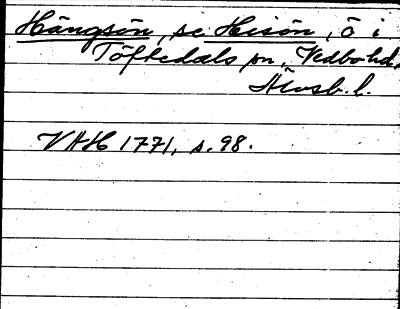 Hängsön, se Hisön, ö i
Töftedals sn, Vedbo hd.
Älvsb. l.
VAH 1771, s. 98.